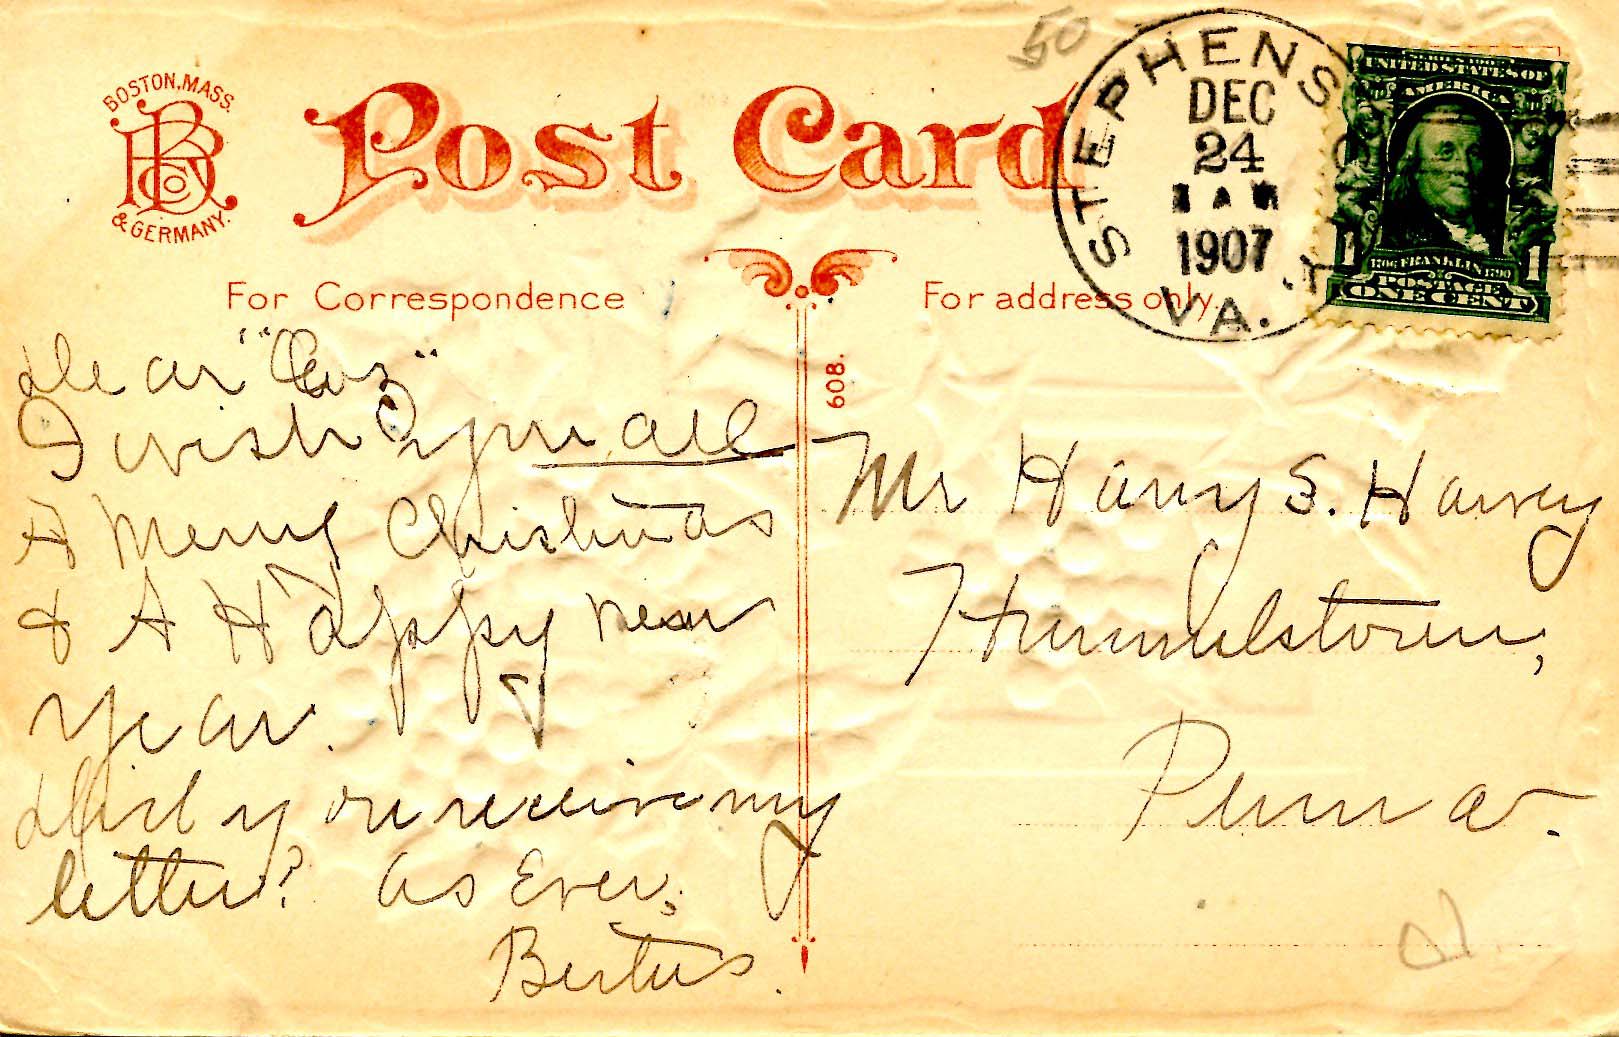 BOSTON, MASS.
& GERMANY.
Post Card
50
STEPHENS
DEC
24
AM
1907
VA.
UNITED STATES OF
AMERICA
1706 FRANKLIN 1790
1 1
POSTAGE
ONE CENT
For Correspondence
For address only.
608.
Dear "Cuz"
I wish you all
A Merry Christmas
& A Happy New
Year.
Did you receive my
letter? As Ever,
Bertus.
Mr Harry S. Harvey
Hummelstown,
Penna.